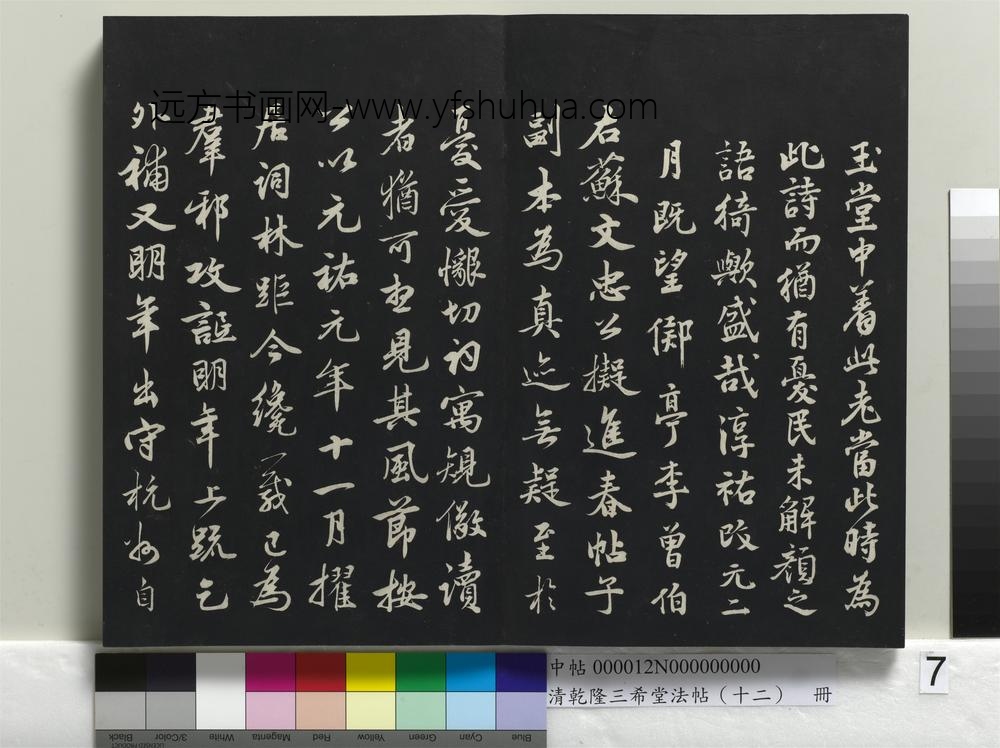 玉堂中着此老當此時為
此詩而猶有憂民未解顏之
語猗歟盛哉淳祐改元二
月既望鄊亭李曾伯
右蘇文忠公擬進春帖子
副本為真迹無疑至於
憂愛懇切詞寓規儆讀
者猶可想見其風節按
公以元祐元年十一月擢
居詞林距今纔一歲已為
羣邪攻詆明年上疏乞
外補又明年出守杭州自
远方书画网-www.yfshuhua.com
中帖 000012N000000000
清乾隆三希堂法帖（十二） 冊
7
Blue Cyan Green Yellow Red Magenta White 3/Color Black